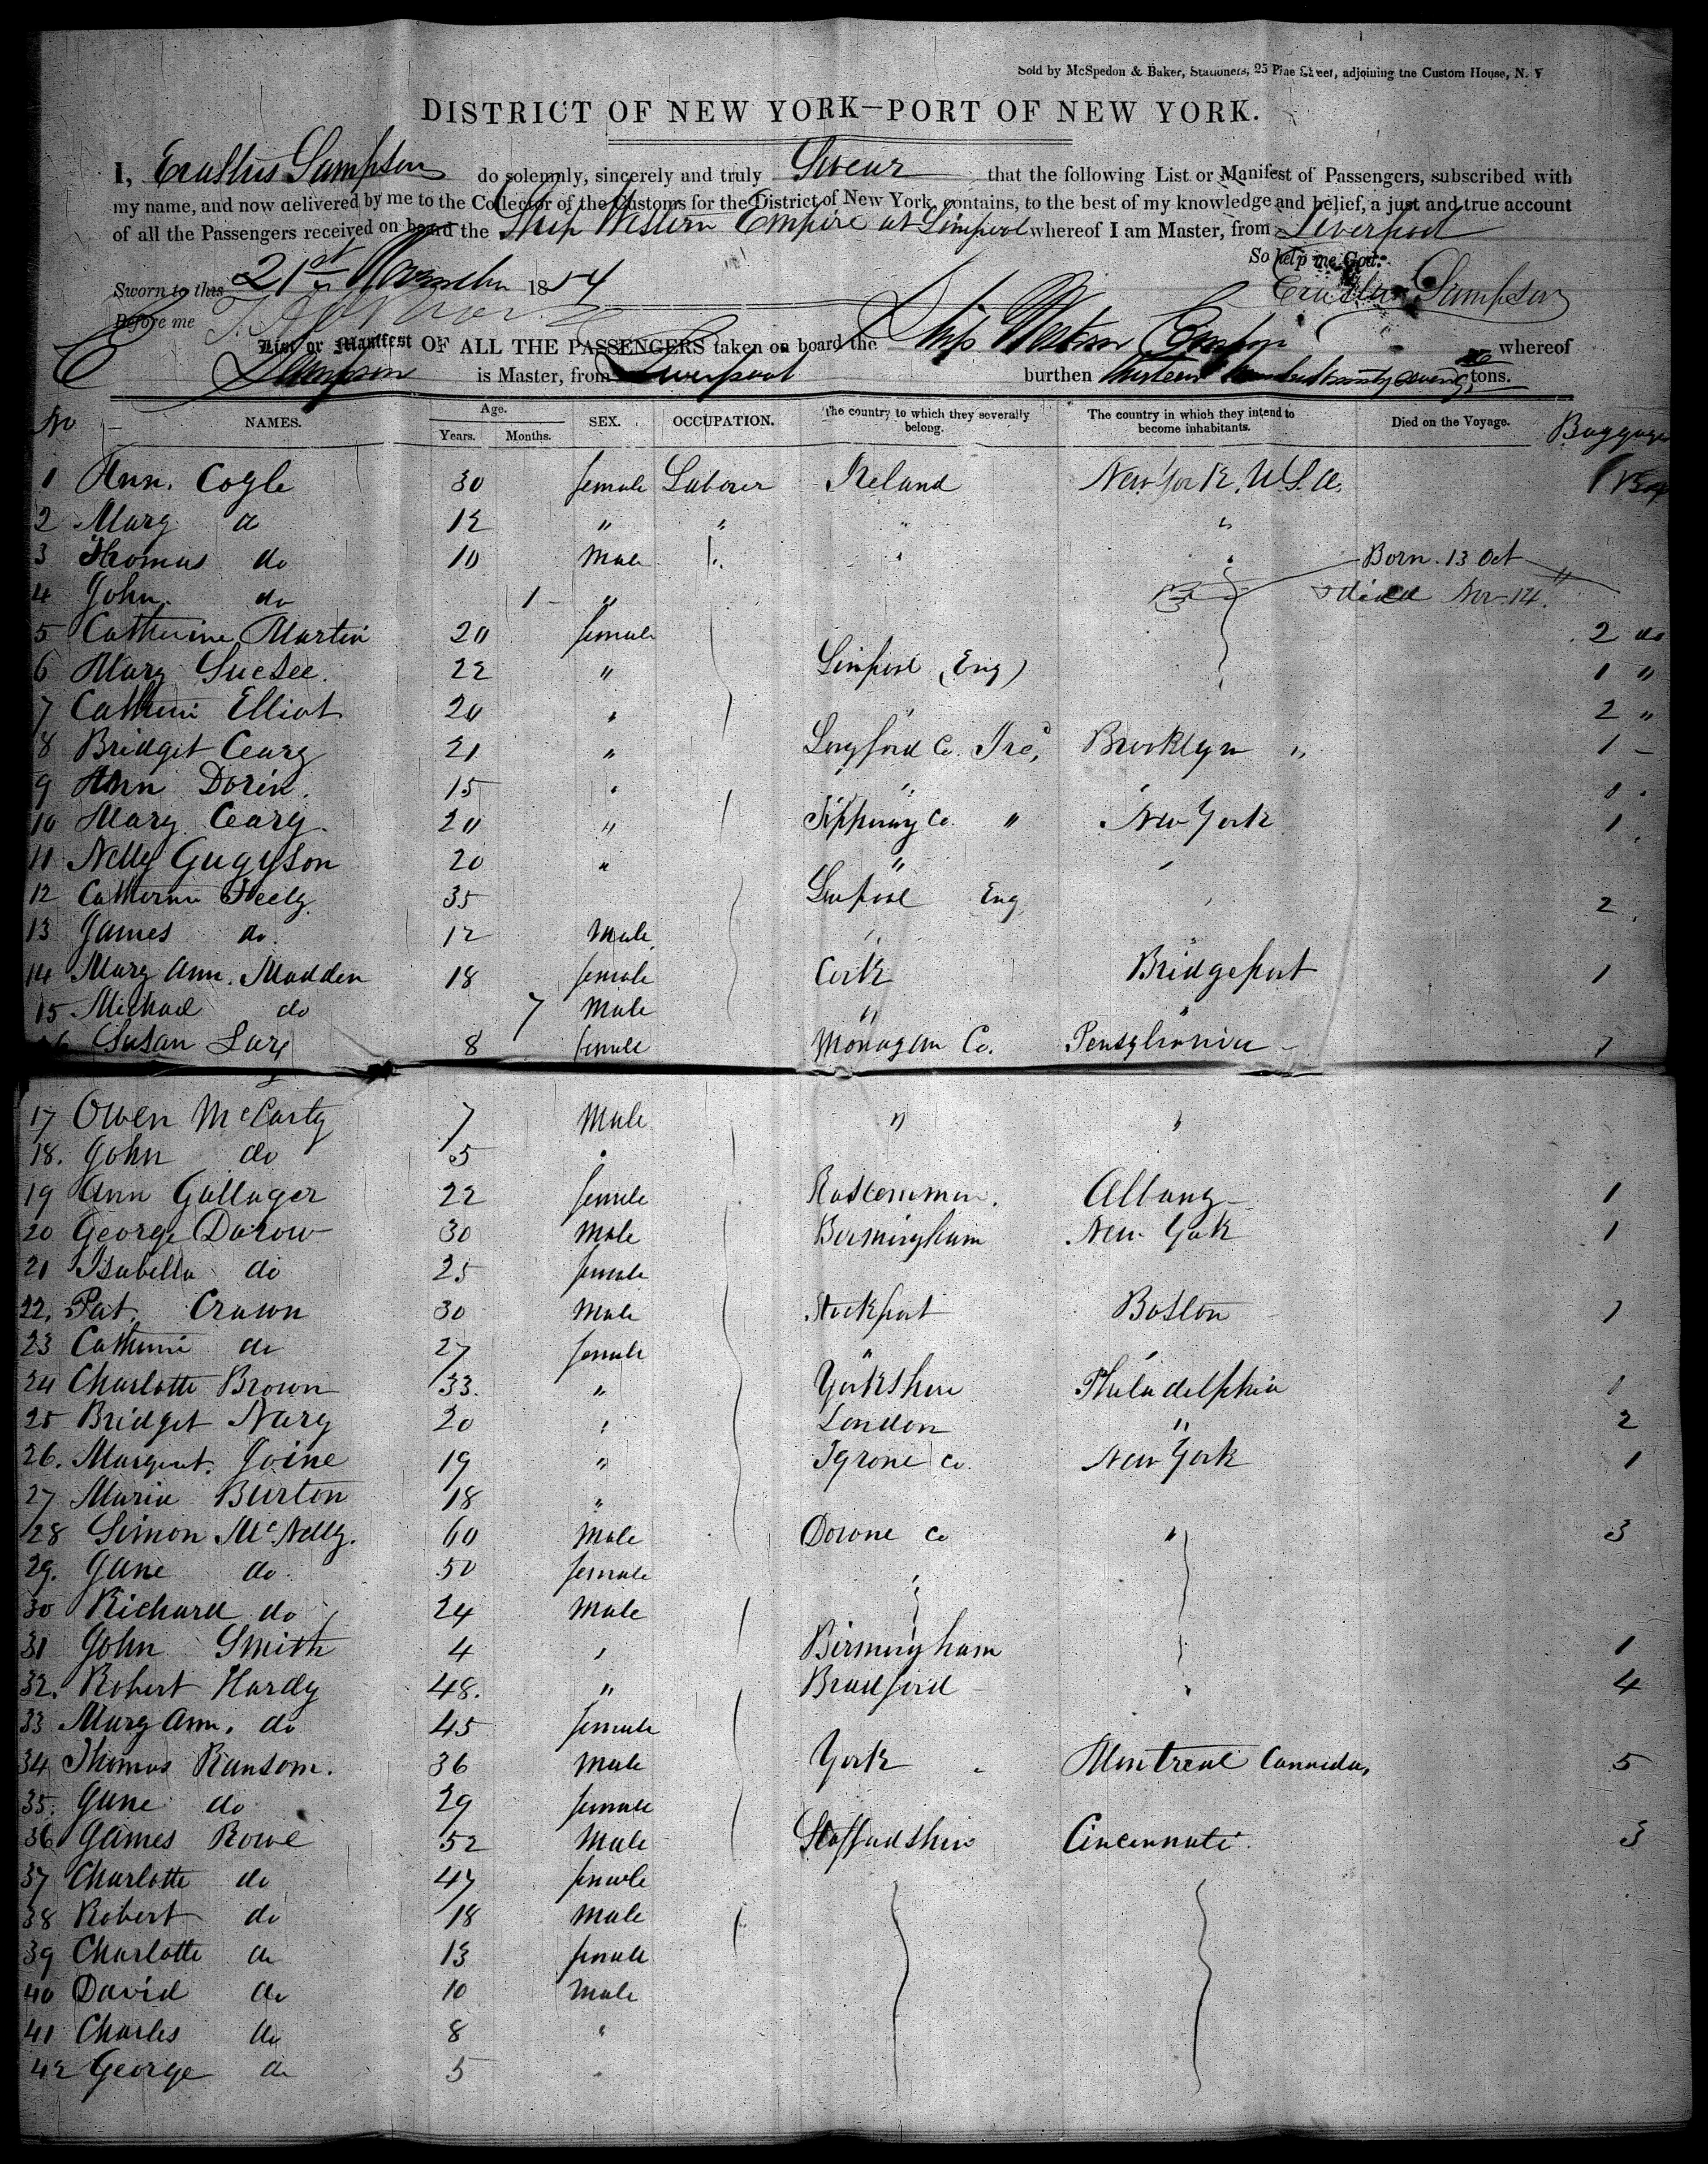 Sold by McSpedon & Baker, Stationers, 25 Pine Street, adjoining the Custom House, N. Y
DISTRICT OF NEW YORK—PORT OF NEW YORK.
I, Erastus Sampson do solemnly, sincerely and truly Swear that the following List or Manifest of Passengers, subscribed with
my name, and now delivered by me to the Collector of the Customs for the District of New York, contains, to the best of my knowledge and belief, a just and true account
of all the Passengers received on board the Ship Western Empire at Liverpool whereof I am Master, from Liverpool
So help me God.
Sworn to this 21st November 1854 Erastus Sampson
Before me
List or Manifest OF ALL THE PASSENGERS taken on board the Ship Western Empire whereof
E Sampson is Master, from Liverpool burthen thirteen hundred twenty seven tons.
No NAMES. Age. Years. Months. SEX. OCCUPATION. The country to which they severally belong. The country in which they intend to become inhabitants. Died on the Voyage. Baggage
1 Ann. Cogle 30 female Laborer Ireland New York, U.S.A. 1 Box
2 Mary do 12 " " " "
3 Thomas do 10 Male " " " Born. 13 Oct
4 John. do 1 " died Nov. 14"
5 Catherine Martin 20 female 2 do
6 Mary 22 " Liverpool (Eng) 1 "
7 Catherine Elliot 20 " " 2 "
8 Bridget Ceary 21 " Longford Co. Ired, Brooklyn " 1 -
9 Ann Dorin. 15 " " " 1 "
10 Mary Ceary. 20 " Tipperary Co. " New York 1
11 Nelly Gugyson 20 " " "
12 Catherine Feely 35 Liverpool Eng " 2
13 James do. 12 Male "
14 Mary Ann. Madden 18 female Cork Bridgeport 1
15. Michael do 7 Male " "
16 Susan 8 female Monagan Co. Pensylvania - 1
17 Owen McCarty 7 Male " "
18. John do 5 "
19 Ann Gallager 22 female Roscommon. Albany 1
20 George Darow 30 Male Birmingham New York 1
21 Isabella do 25 female
22. Pat. Crawn 30 Male Stockport Boston 1
23 Catherine do 27 female " "
24 Charlotte Brown 33. " Yorkshire Philadelphia 1
25 Bridget Nary 20 " London " 2
26. Margret. Joine 19 " Tyrone Co. New York 1
27 Maria Burton 18 "
28 Simon McNelly. 60 Male Downe Co " 3
29. Jane do. 50 female "
30 Richard do 24 Male
31 John Smith 4 " Birmingham 1
32. Robert Hardy 48. " Bradford - " 4
33 Mary Ann. do 45 female
34 Thomas Ransom. 36 Male York Montreal Cannada, 5
35. Jane do 29 female
36 James Rowe 52 Male Staffordshire Cincinnati. 3
37 Charlotte do 47 female
38 Robert do 18 Male
39 Charlotte do 13 female
40 David do 10 Male
41 Charles do 8 "
42 George do 5 "